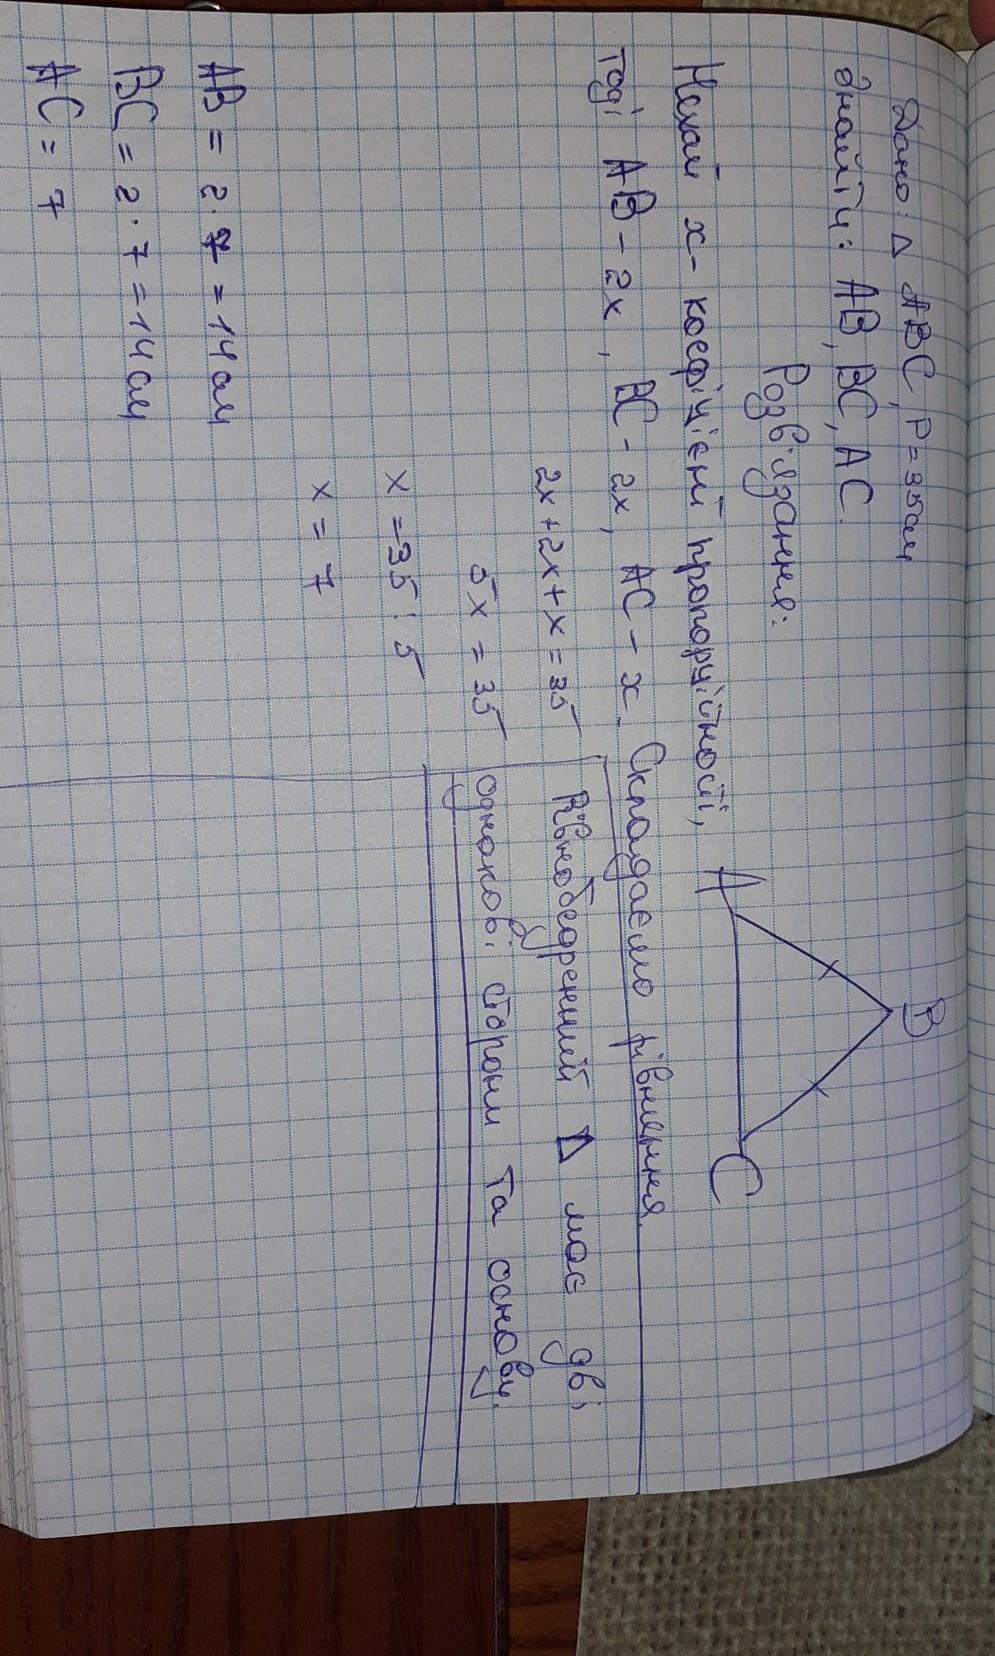 Дано: Δ ABC, P=35см
Знайти: AB, BC, AC.
Розв'язання:
B
A
C
Нехай x- коефіцієнт пропорційності,
тоді AB - 2x, BC - 2x, AC - x. Складаємо рівняння
2x+2x+x=35
Рівнобедренний Δ має дві
5x = 35
однакові сторони та основу.
x = 35 : 5
x = 7
AB = 2·7 = 14см
BC = 2·7 = 14см
AC = 7